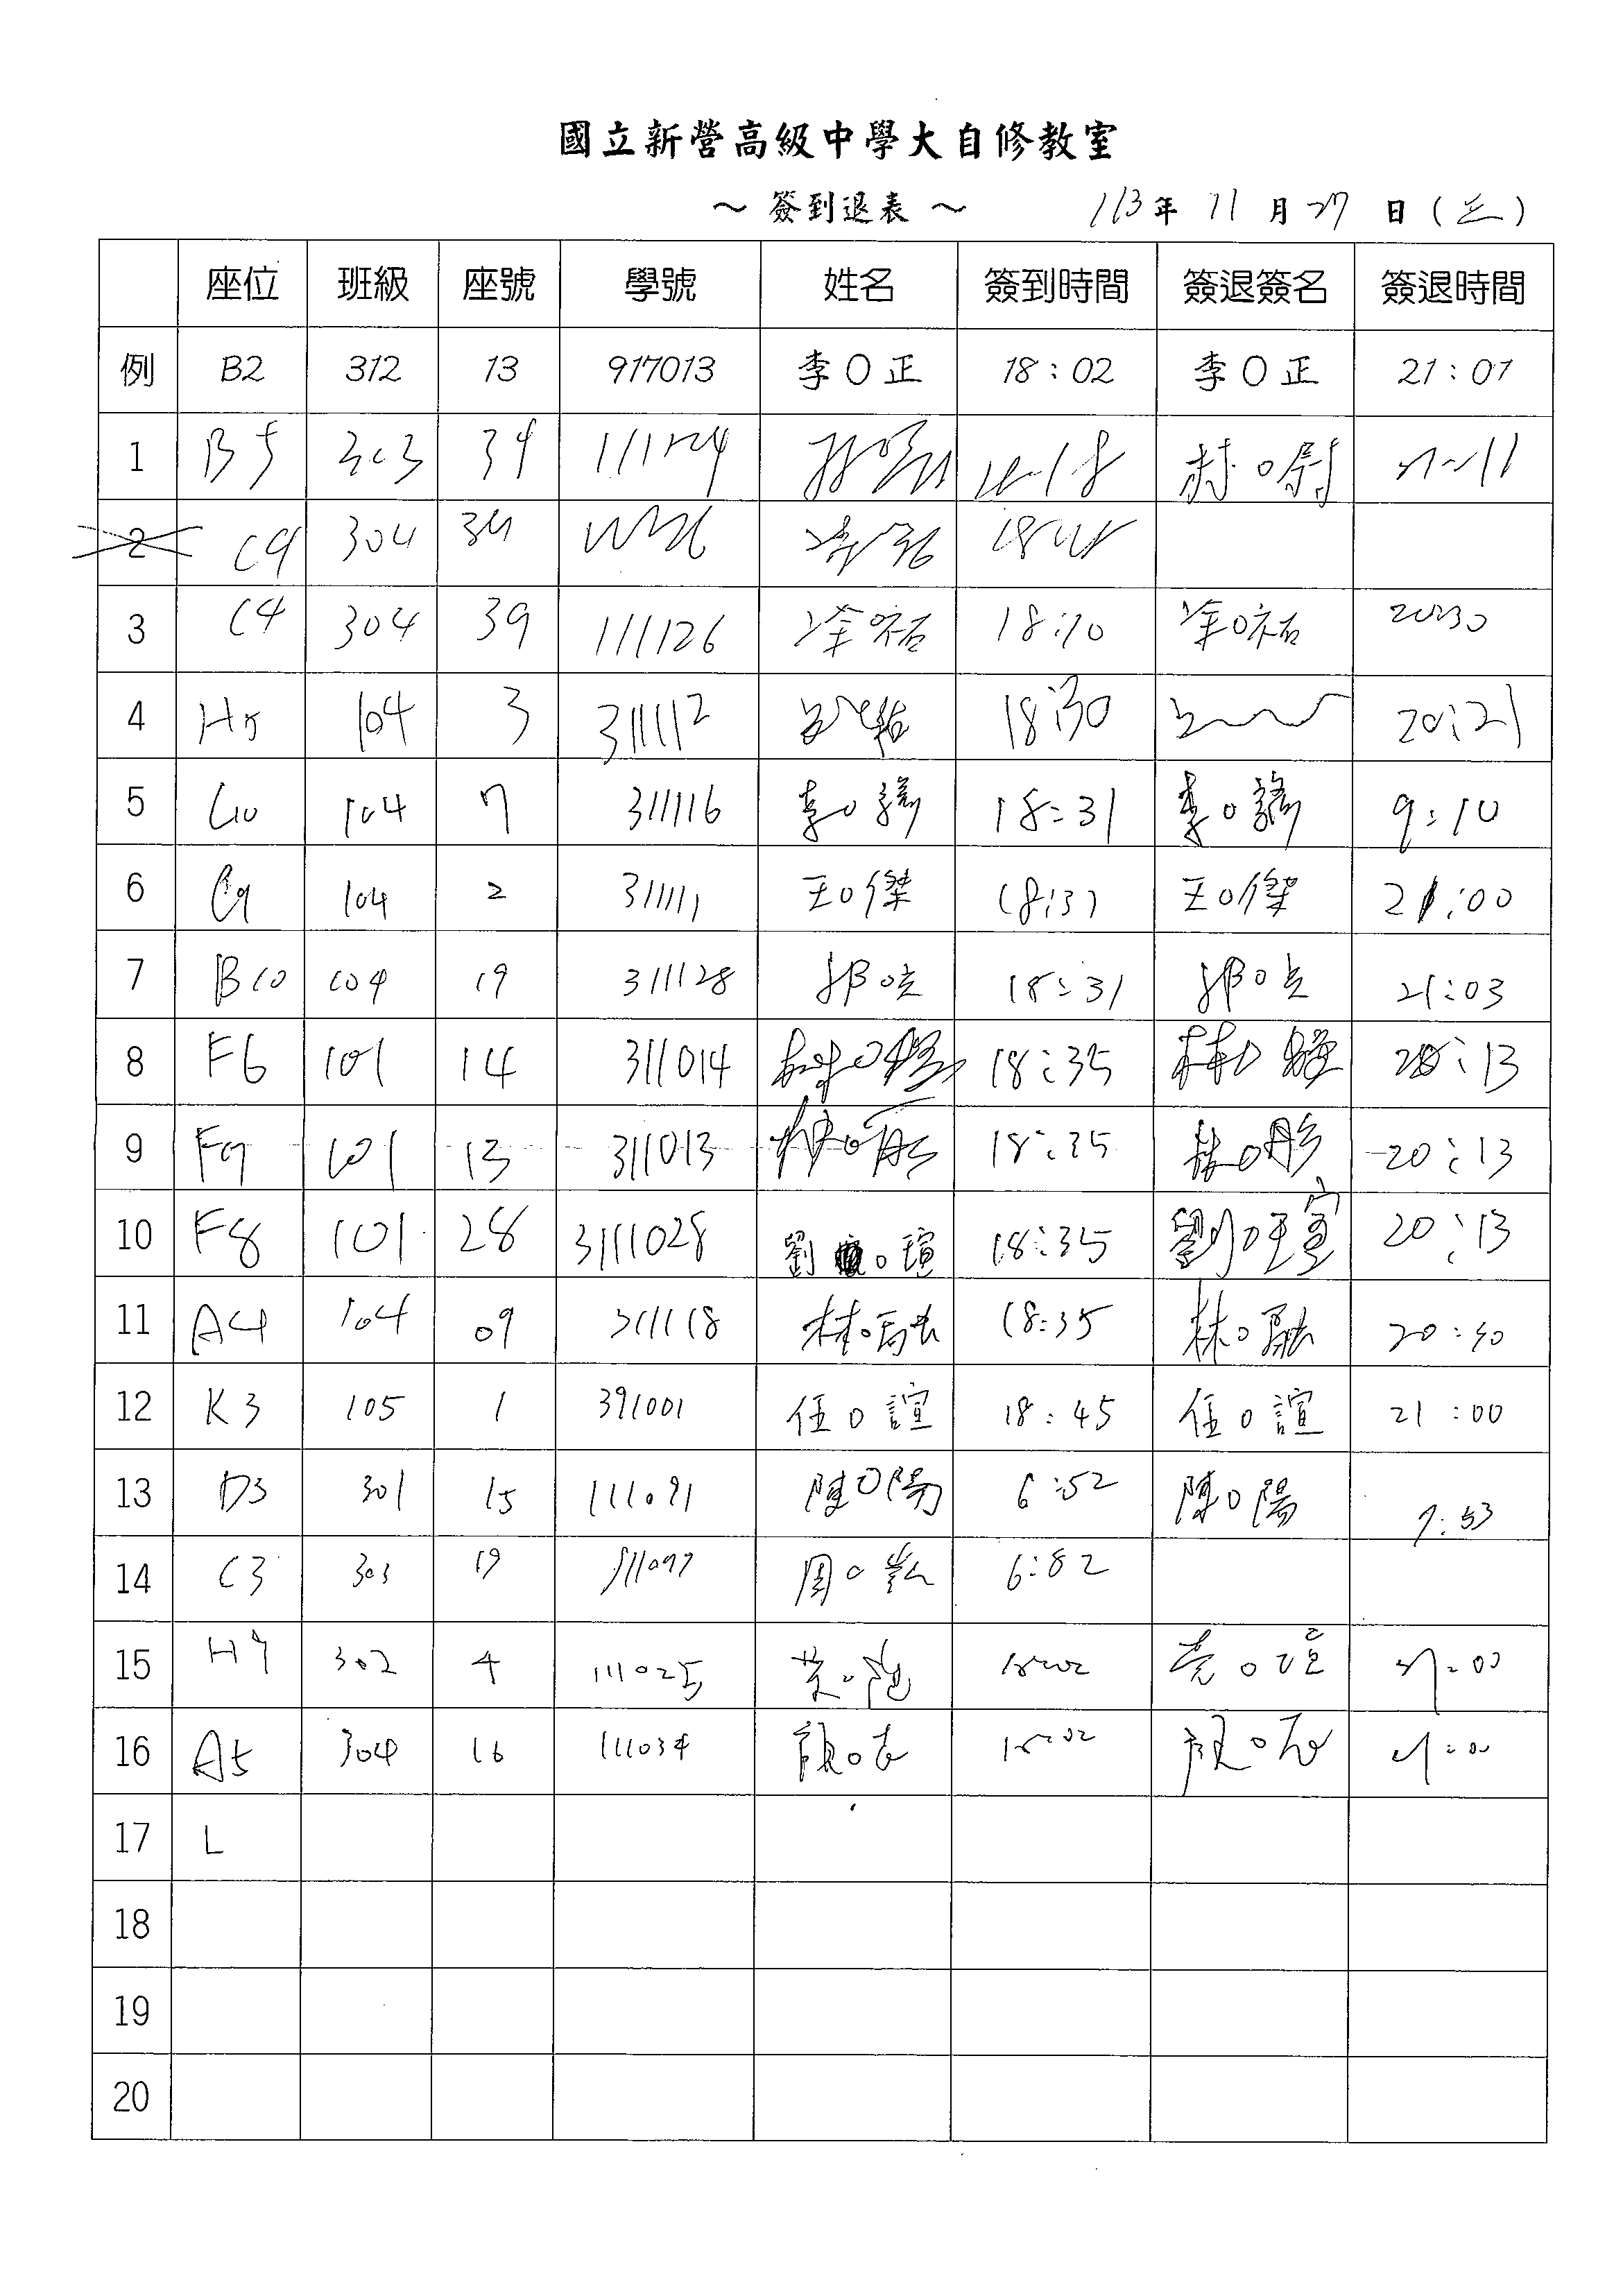 國立新營高級中學大自修教室
～ 簽到退表 ～ 113年 11 月 27 日 (三)
座位 班級 座號 學號 姓名 簽到時間 簽退簽名 簽退時間
例 B2 312 13 917013 李O正 18:02 李O正 21:01
1 B5 303 34
2 C9 304 39
3 C4 304 39 111126 涂O祐 18:20 涂O祐 20:30
4 H5 104 3 311112 18:30 20:21
5 G10 104 7 311116 李O 18:31 李O 9:10
6 G9 104 2 311111 王O傑 18:31 王O傑 21:00
7 B10 104 19 311128 18:31 21:03
8 F6 101 14 311014 林O 18:35 林O 20:13
9 F9 101 13 311013 林O彤 18:35 林O彤 20:13
10 F8 101 28 3111028 劉O瑄 18:35 劉O瑄 20:13
11 A4 104 09 311118 林O 18:35 林O 20:30
12 K3 105 1 391001 任O誼 18:45 任O誼 21:00
13 D3 301 15 111091 陳O陽 6:52 陳O陽 7:53
14 C3 303 19 111097 周O 6:82
15 H9 302 4 111025 黃O 21:00
16 A5 304 16 111034 顏O 21:00
17 L
18
19
20